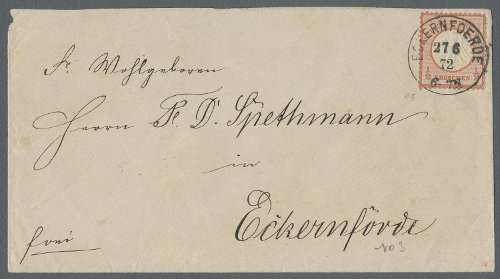 ECKERNFOERDE
27 6
72
6-7N
½ GROSCHEN ½
Sr. Wohlgeboren
Herrn Fr. D. Spethmann
in
Eckernförde
frei
No 3